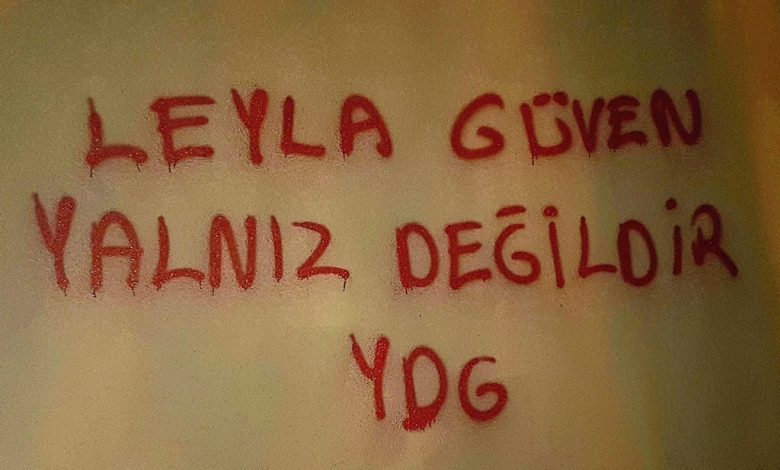 LEYLA GÜVEN
YALNIZ DEĞİLDİR
YDG